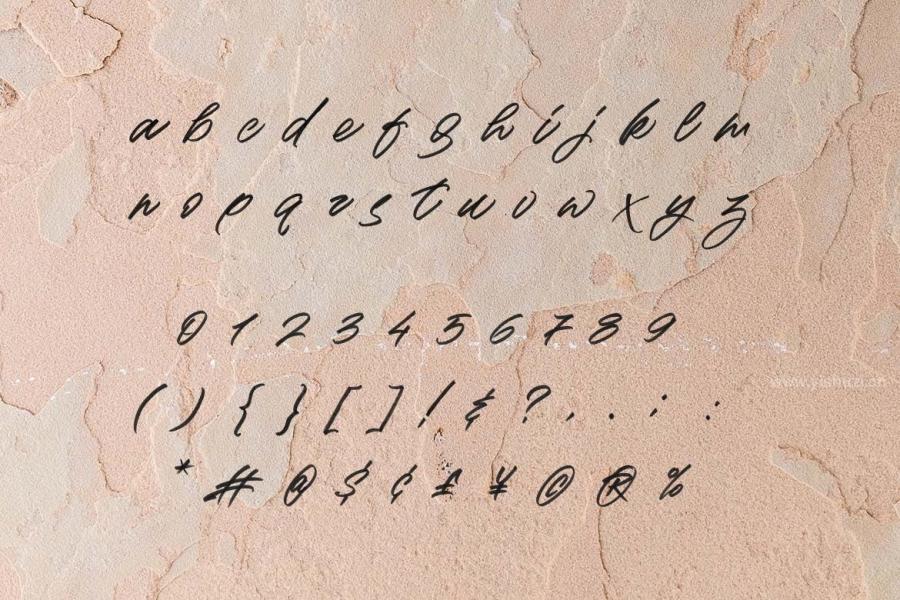 a b c d e f g h i j k l m
n o p q r s t u v w x y z
0 1 2 3 4 5 6 7 8 9
( ) { } [ ] ! & ? , . ; :
* # @ $ ¢ £ ¥ © ® %
www.yishuzi.cn